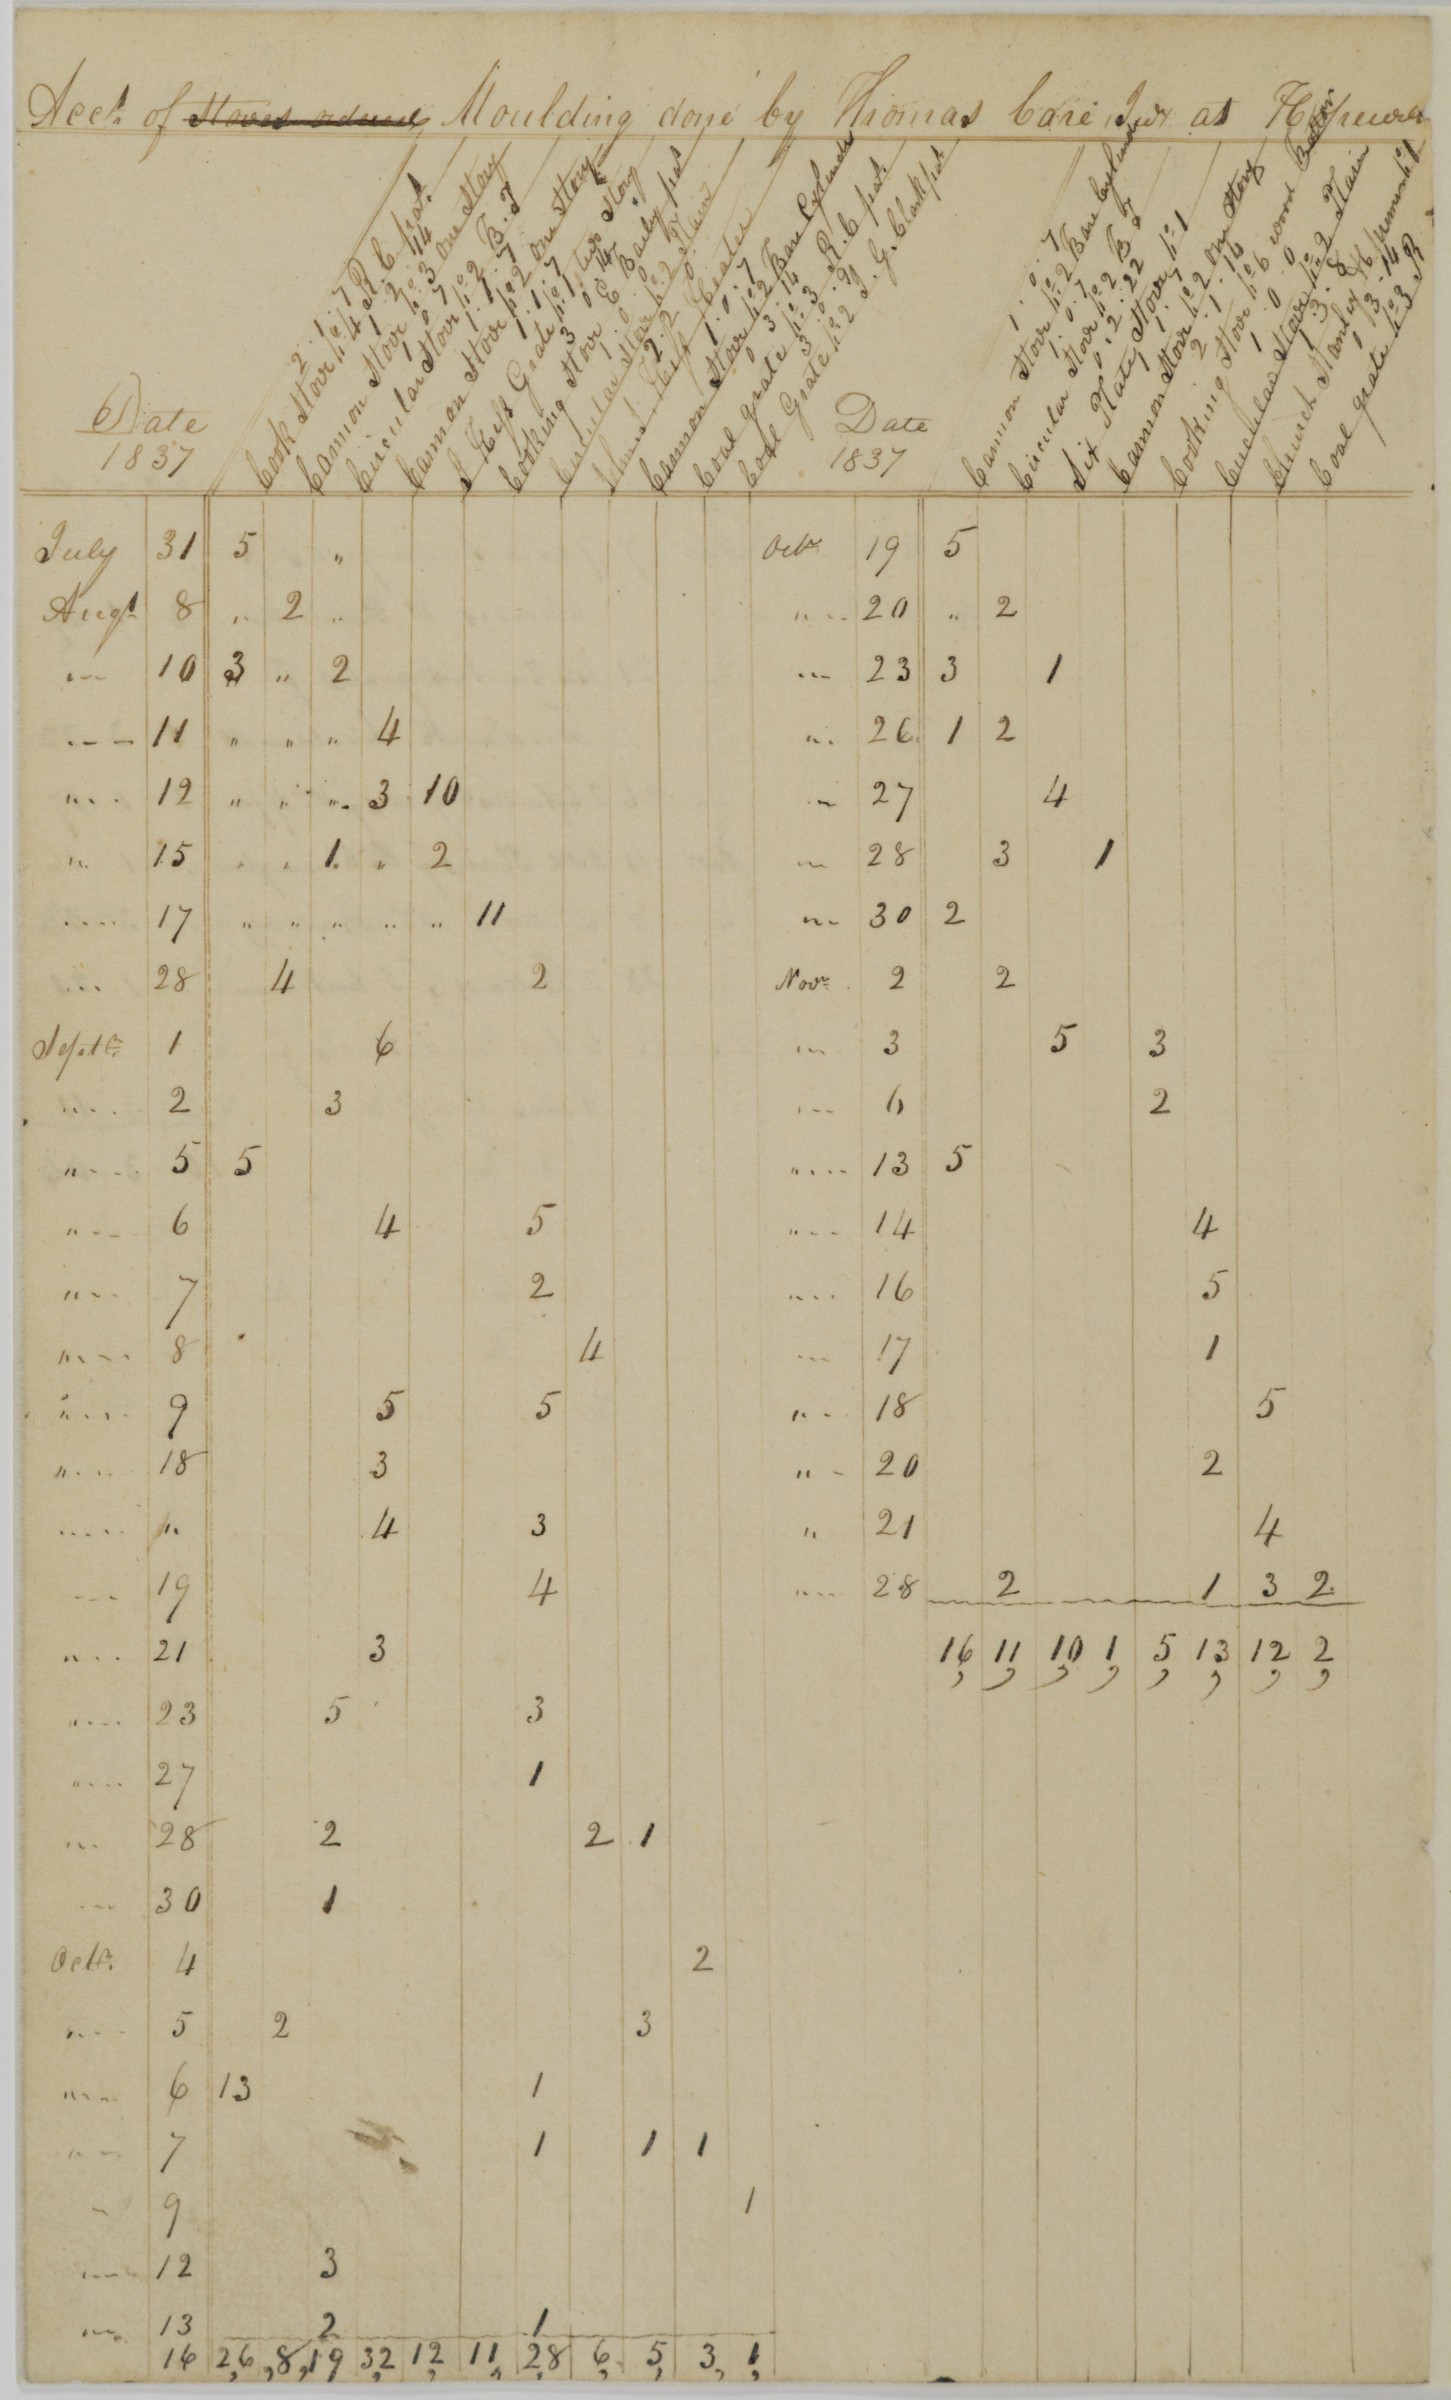 Acct. of Stoves Moulding done by Thomas Care Junr at Hopewell
Date
1837
Cook Stove No. 4 R C pat.
2 . 1 . 7
Cannon Stove No. 3 one Story
1 . 2 . 14
Circular Stove No. 2 B. F
1 . 0 . 7
Cannon Stove No. 2 one Story
1 . 1 . 7
Grate No. 1 two Story
1 . 1 . 7
Cooking Stove E Baily pat
3 . 0 . 14
Circular Stove No. 2 Plain
1 . 0 . 0
Cannon Stove No. 2 Bare Cylinder
1 . 0 . 7
Coal grate No. 3 R. C pat
0 . 3 . 14
Coal Grate No. 2 J. G. Clark pat
3 . 0 . 21
Date
1837
Cannon Stove No. 2 Bare Cylinder
1 . 0 . 7
Circular Stove No. 2 B F
1 . 0 . 7
Six Plate Stove No. 1
0 . 2 . 22
Cannon Stove No. 2 one Story
1 . 1 . 7
Cooking Stove No. 6 wood
2 . 1 . 14
Circular Stove No. 2 Plain
1 . 0 . 0
Church
1 . 3 . 8
Coal grate No. 3 R
0 . 3 . 14
July 31 5 "
Augt 8 " 2 "
" 10 3 " 2
" 11 " " " 4
" 12 " " " 3 10
" 15 " " 1 " 2
" 17 " " " " " 11
" 28 4 2
Septr. 1 6
" 2 3
" 5 5
" 6 4 5
" 7 2
" 8 4
" 9 5 5
" 18 3
" " 4 3
" 19 4
" 21 3
" 23 5 3
" 27 1
" 28 2 2 1
" 30 1
Octr. 4 2
" 5 2 3
" 6 13 1
" 7 1 1 1
" 9 1
" 12 3
" 13 2 1
16 26, 8, 19 32, 12, 11, 28, 6, 5, 3, 1,
Octr 19 5
" 20 " 2
" 23 3 1
" 26 1 2
" 27 4
" 28 3 1
" 30 2
Novr. 2 2
" 3 5 3
" 6 2
" 13 5
" 14 4
" 16 5
" 17 1
" 18 5
" 20 2
" 21 4
" 28 2 1 3 2
16, 11, 10, 1, 5, 13, 12, 2,